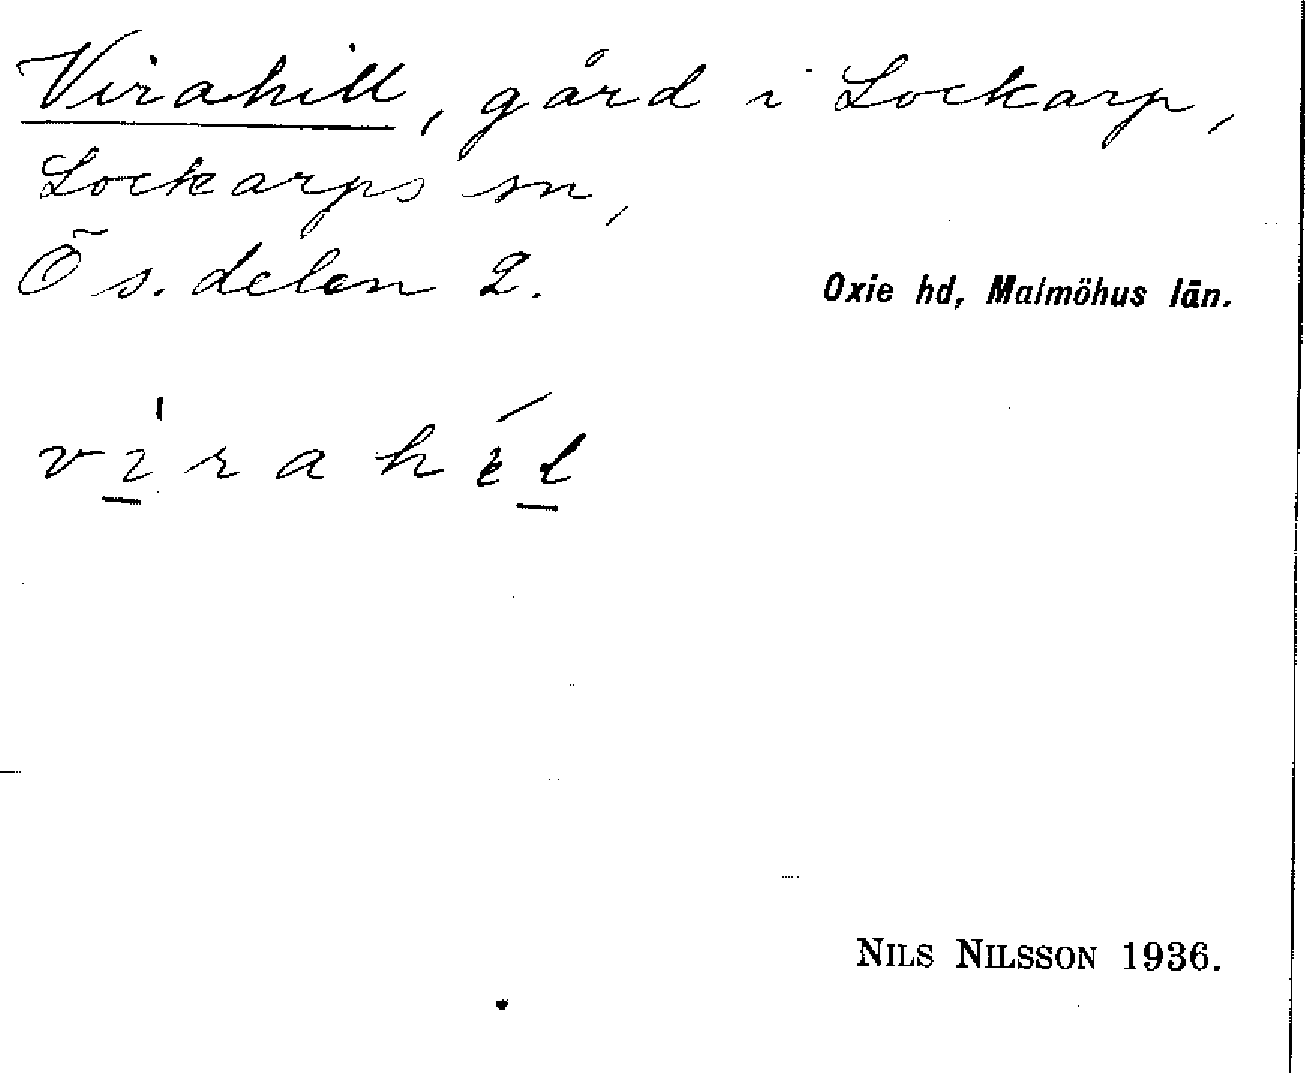 Virahill, gård i Lockarp,
Lockarps sn,
Ö s. delen 2.
Oxie hd, Malmöhus län.
virahil
NILS NILSSON 1936.